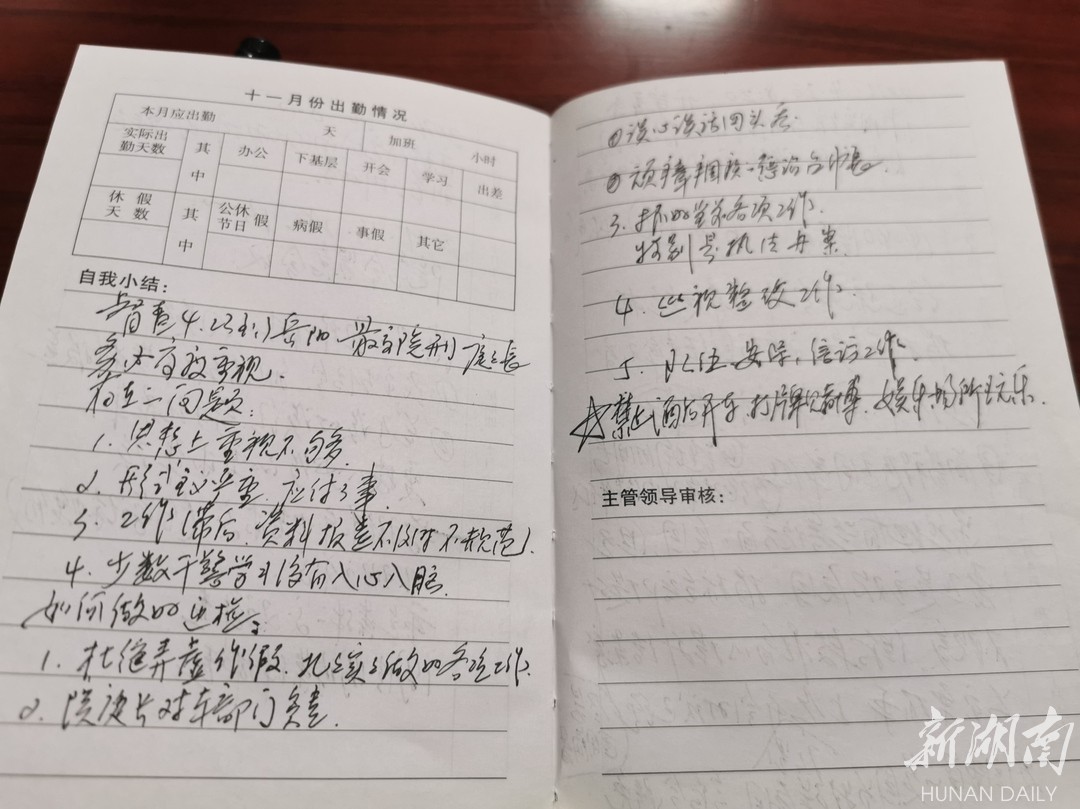 十一月份出勤情况
本月应出勤 天 加班 小时
实际出勤天数 其中 办公 下基层 开会 学习 出差
休假天数 其中 公休节日假 病假 事假 其它
自我小结:
督查4.23到岳阳、最高院刑庭庭长
高度重视.
存在问题:
1. 思想上重视不够.
2. 形式主义严重、应付了事.
3. 工作滞后、资料报送不及时不规范.
4. 少数干警学习没有入心入脑.
如何做好迎检:
1. 杜绝弄虚作假、扎扎实实做好各项工作.
2. 对本部门负责.
① 谈心谈话回头看.
② 顽瘴痼疾
3. 抓好当前各项工作.
特别是执法办案.
4. 巡视整改工作.
5. 队伍安保、信访工作.
☆禁止酒后开车、打牌赌博、娱乐场所玩乐.
主管领导审核:
新湖南
HUNAN DAILY